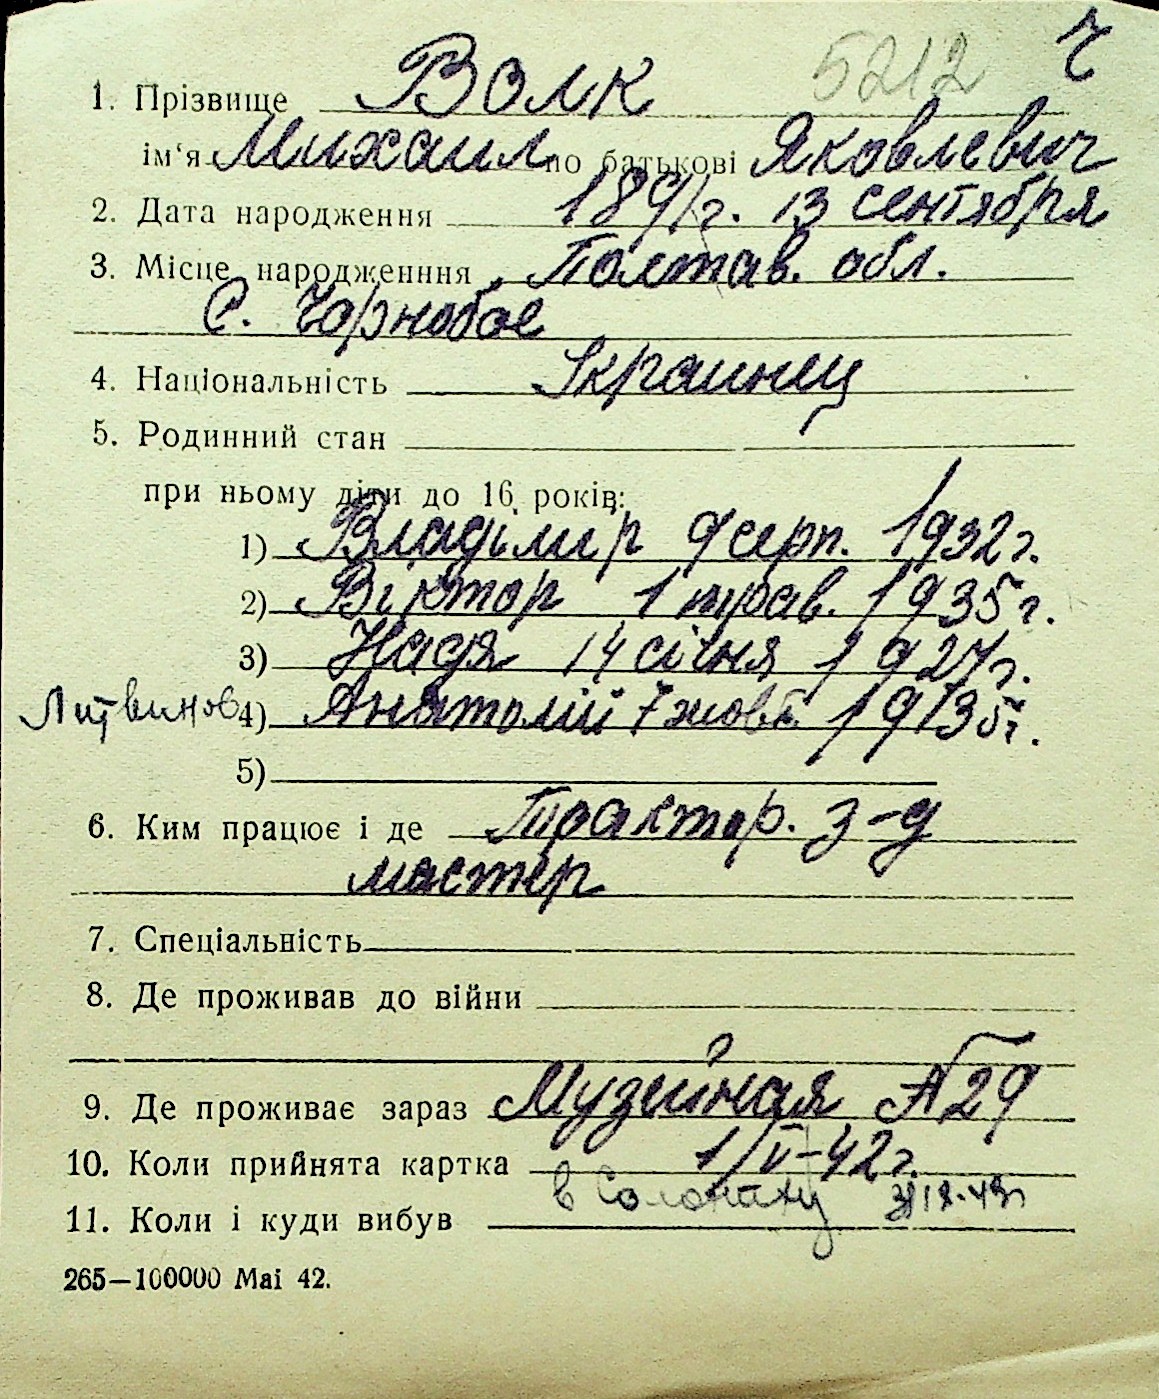 5212 Ч
1. Прізвище Волк
ім'я Михаил по батькові Яковлевич
2. Дата народження 1891г. 13 сентября
3. Місце народженння Полтав. обл.
С. Чорнобое
4. Національність Украинец
5. Родинний стан
при ньому діти до 16 років:
1) Владімир 9 серп. 1932г.
2) Віктор 1 трав. 1935г.
3) Надя 14 січня 1927г.
Литвинов 4) Анатолій 7 жовт. 1935г.
5)
6. Ким працює і де Трактор. з-д
мастер
7. Спеціальність
8. Де проживав до війни
9. Де проживає зараз Музейная № 29
10. Коли прийнята картка 1/V-42г.
11. Коли і куди вибув в
265—100000 Mai 42.